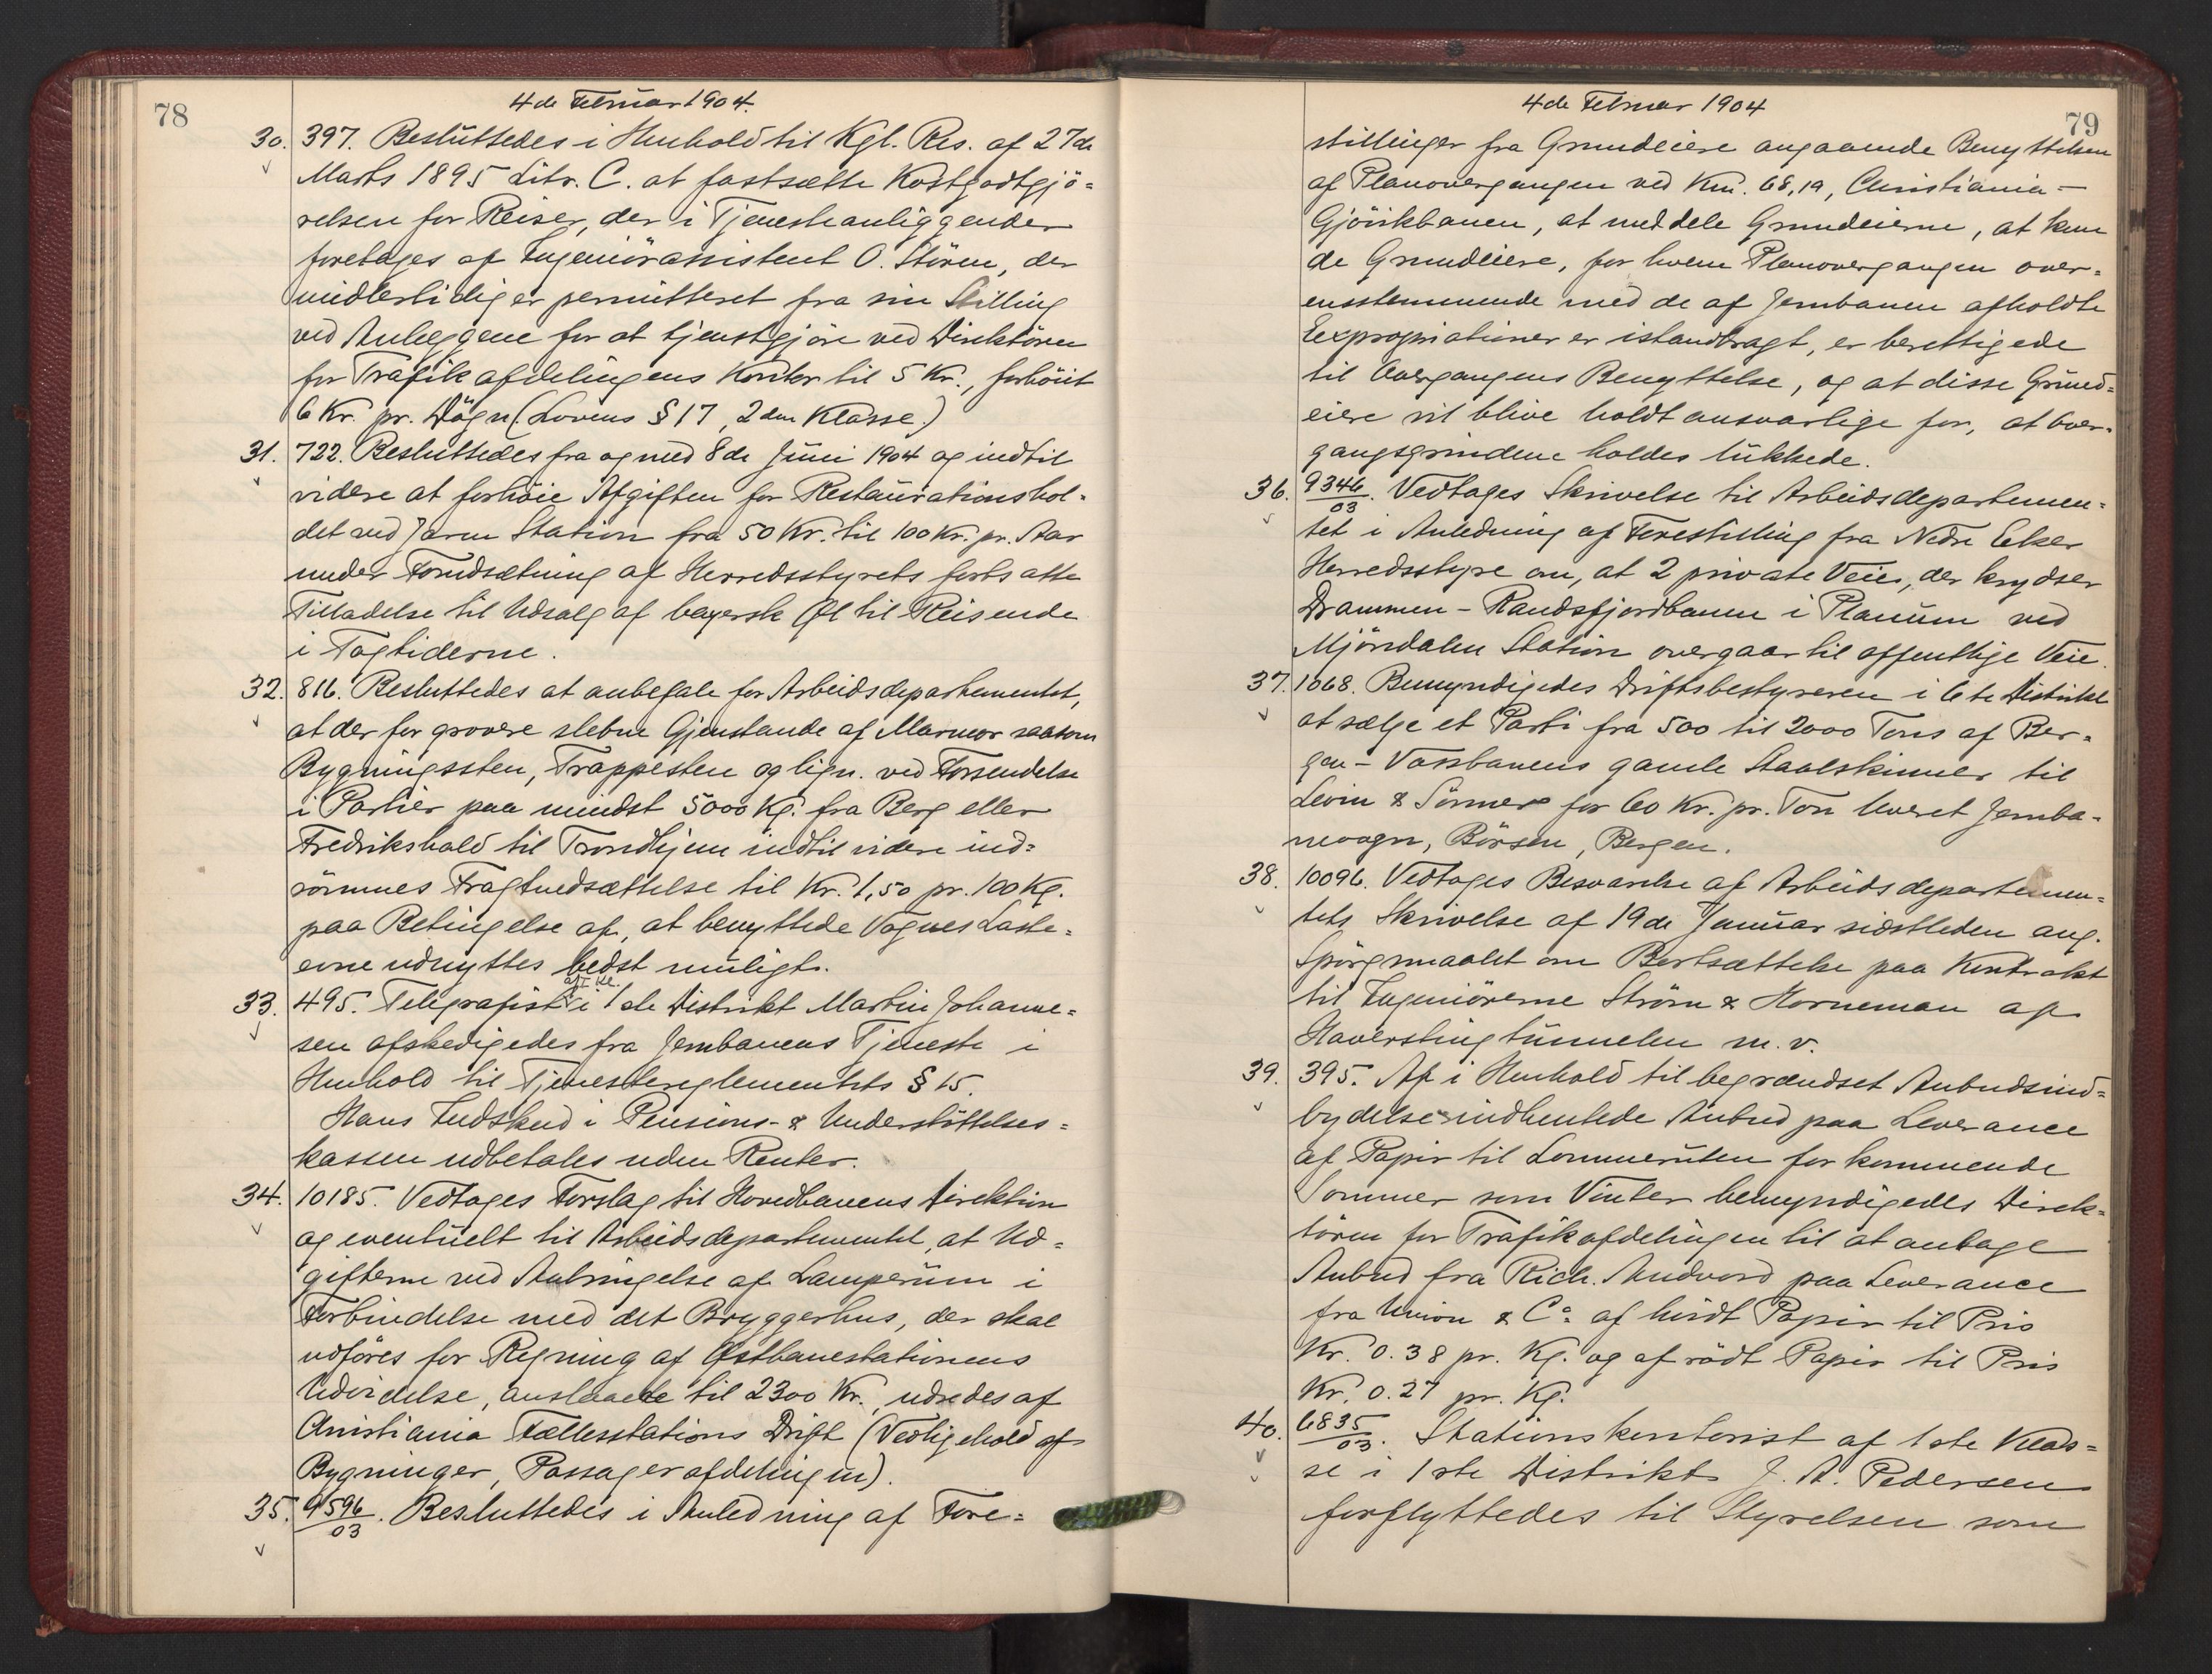 78
4de Februar 1904.
30. 397. Besluttedes i Henhold til Kgl. Res. af 27de
Marts 1895 Litr. C. at fastsætte Kostgodtgjö-
relsen for Reiser, der i Tjenesteanliggender
foretages af Ingeniörassistent O. Stören, der
midlertidig er permitteret fra sin Stilling
ved Anlæggene for at tjenstgjöre ved Direktören
for Trafikafdelingens Kontor til 5 Kr., forhöiet
6 Kr. pr. Dögn (Lovens § 17, 2den Klasse.)
31. 722. Besluttedes fra og med 8de Juni 1904 og indtil
videre at forhöie Afgiften for Restaurationshol-
det ved Jaren Station fra 50 Kr. til 100 Kr. pr. Aar
under Forudsætning af Herredsstyrets fortsatte
Tilladelse til Udsalg af bayersk Øl til Reisende
i Togtiderne.
32. 816. Besluttedes at anbefale for Arbeidsdepartementet,
at der for grovere slebne Gjenstande af Marmor saasom
Bygningssten, Trappesten og lign. ved Forsendelse
i Partier paa mindst 5000 Kg. fra Berg eller
Fredrikshald til Trondhjem indtil videre ind-
römmes Fragtnedsættelse til Kr. 1,50 pr. 100 Kg.
paa Betingelse af, at benyttede Vognes Laste-
evne udnyttes bedst muligt.
33. 495. Telegrafist af I Kl. i 1ste Distrikt Martin Johanne-
sen afskedigedes fra Jernbanens Tjeneste i
Henhold til Tjenestereglementets § 15.
Hans Indskud i Pensions- & Understöttelses-
kassen udbetales uden Renter.
34. 10185. Vedtoges Forslag til Hovedbanens Direktion
og eventuelt til Arbeidsdepartementet, at Ud-
gifterne ved Anbringelse af Lamperum i
Forbindelse med det Bryggerhus, der skal
udföres for Regning af Østbanestationens
Udvidelse, anslaaede til 2300 Kr., udredes af
Christiania Fællesstations Drift (Vedligehold af
Bygninger, Passagerafdelingen).
35. 9596/03. Besluttedes i Anledning af Fore-
79
4de Februar 1904
stillinger fra Grundeiere angaaende Benyttelsen
af Planovergangen ved Km. 68,19, Christiania-
Gjövikbanen, at meddele Grundeierne, at kun
de Grundeiere, for hvem Planovergangen over-
ensstemmende med de af Jernbanen afholdte
Expropriationer er istandbragt, er berettigede
til Overgangens Benyttelse, og at disse Grund-
eiere vil blive holdt ansvarlige for, at Over-
gangsgrindene holdes lukkede.
36. 9346/03. Vedtoges Skrivelse til Arbeidsdepartemen-
tet i Anledning af Forestilling fra Nedre Eker
Herredsstyre om, at 2 private Veie, der krydser
Drammen-Randsfjordbanen i Planum ved
Mjöndalen Station overgaar til offentlige Veie.
37. 1068. Bemyndigedes Driftsbestyreren i 6te Distrikt
at sælge et Parti fra 500 til 2000 Tons af Ber-
gen-Vossbanens gamle Staalskinner til
Levin & Sönner for 60 Kr. pr. Ton leveret Jernba-
nevogn, Börsen, Bergen.
38. 10096. Vedtoges Besvarelse af Arbeidsdepartemen-
tets Skrivelse af 19de Januar sidstleden ang.
Spörgsmaalet om Bortsættelse paa Kontrakt
til Ingeniörerne Ström & Horneman af
Haverstingtunnelen m.v.
39. 395. Af i Henhold til begrændset Anbudsind-
bydelse indhentede Anbud paa Leverance
af Papir til Lommeruten for kommende
Sommer som Vinter bemyndigedes Direk-
tören for Trafikafdelingen til at antage
Anbud fra Rich. Andvord paa Leverance
fra Union & Co. af hvidt Papir til Pris
Kr. 0.38 pr. Kg. og af rödt Papir til Pris
Kr. 0.27 pr. Kg.
40. 6835/03. Stationskontorist af 1ste Klas-
se i 1ste Distrikt J. A. Pedersen
forflyttedes til Styrelsen som